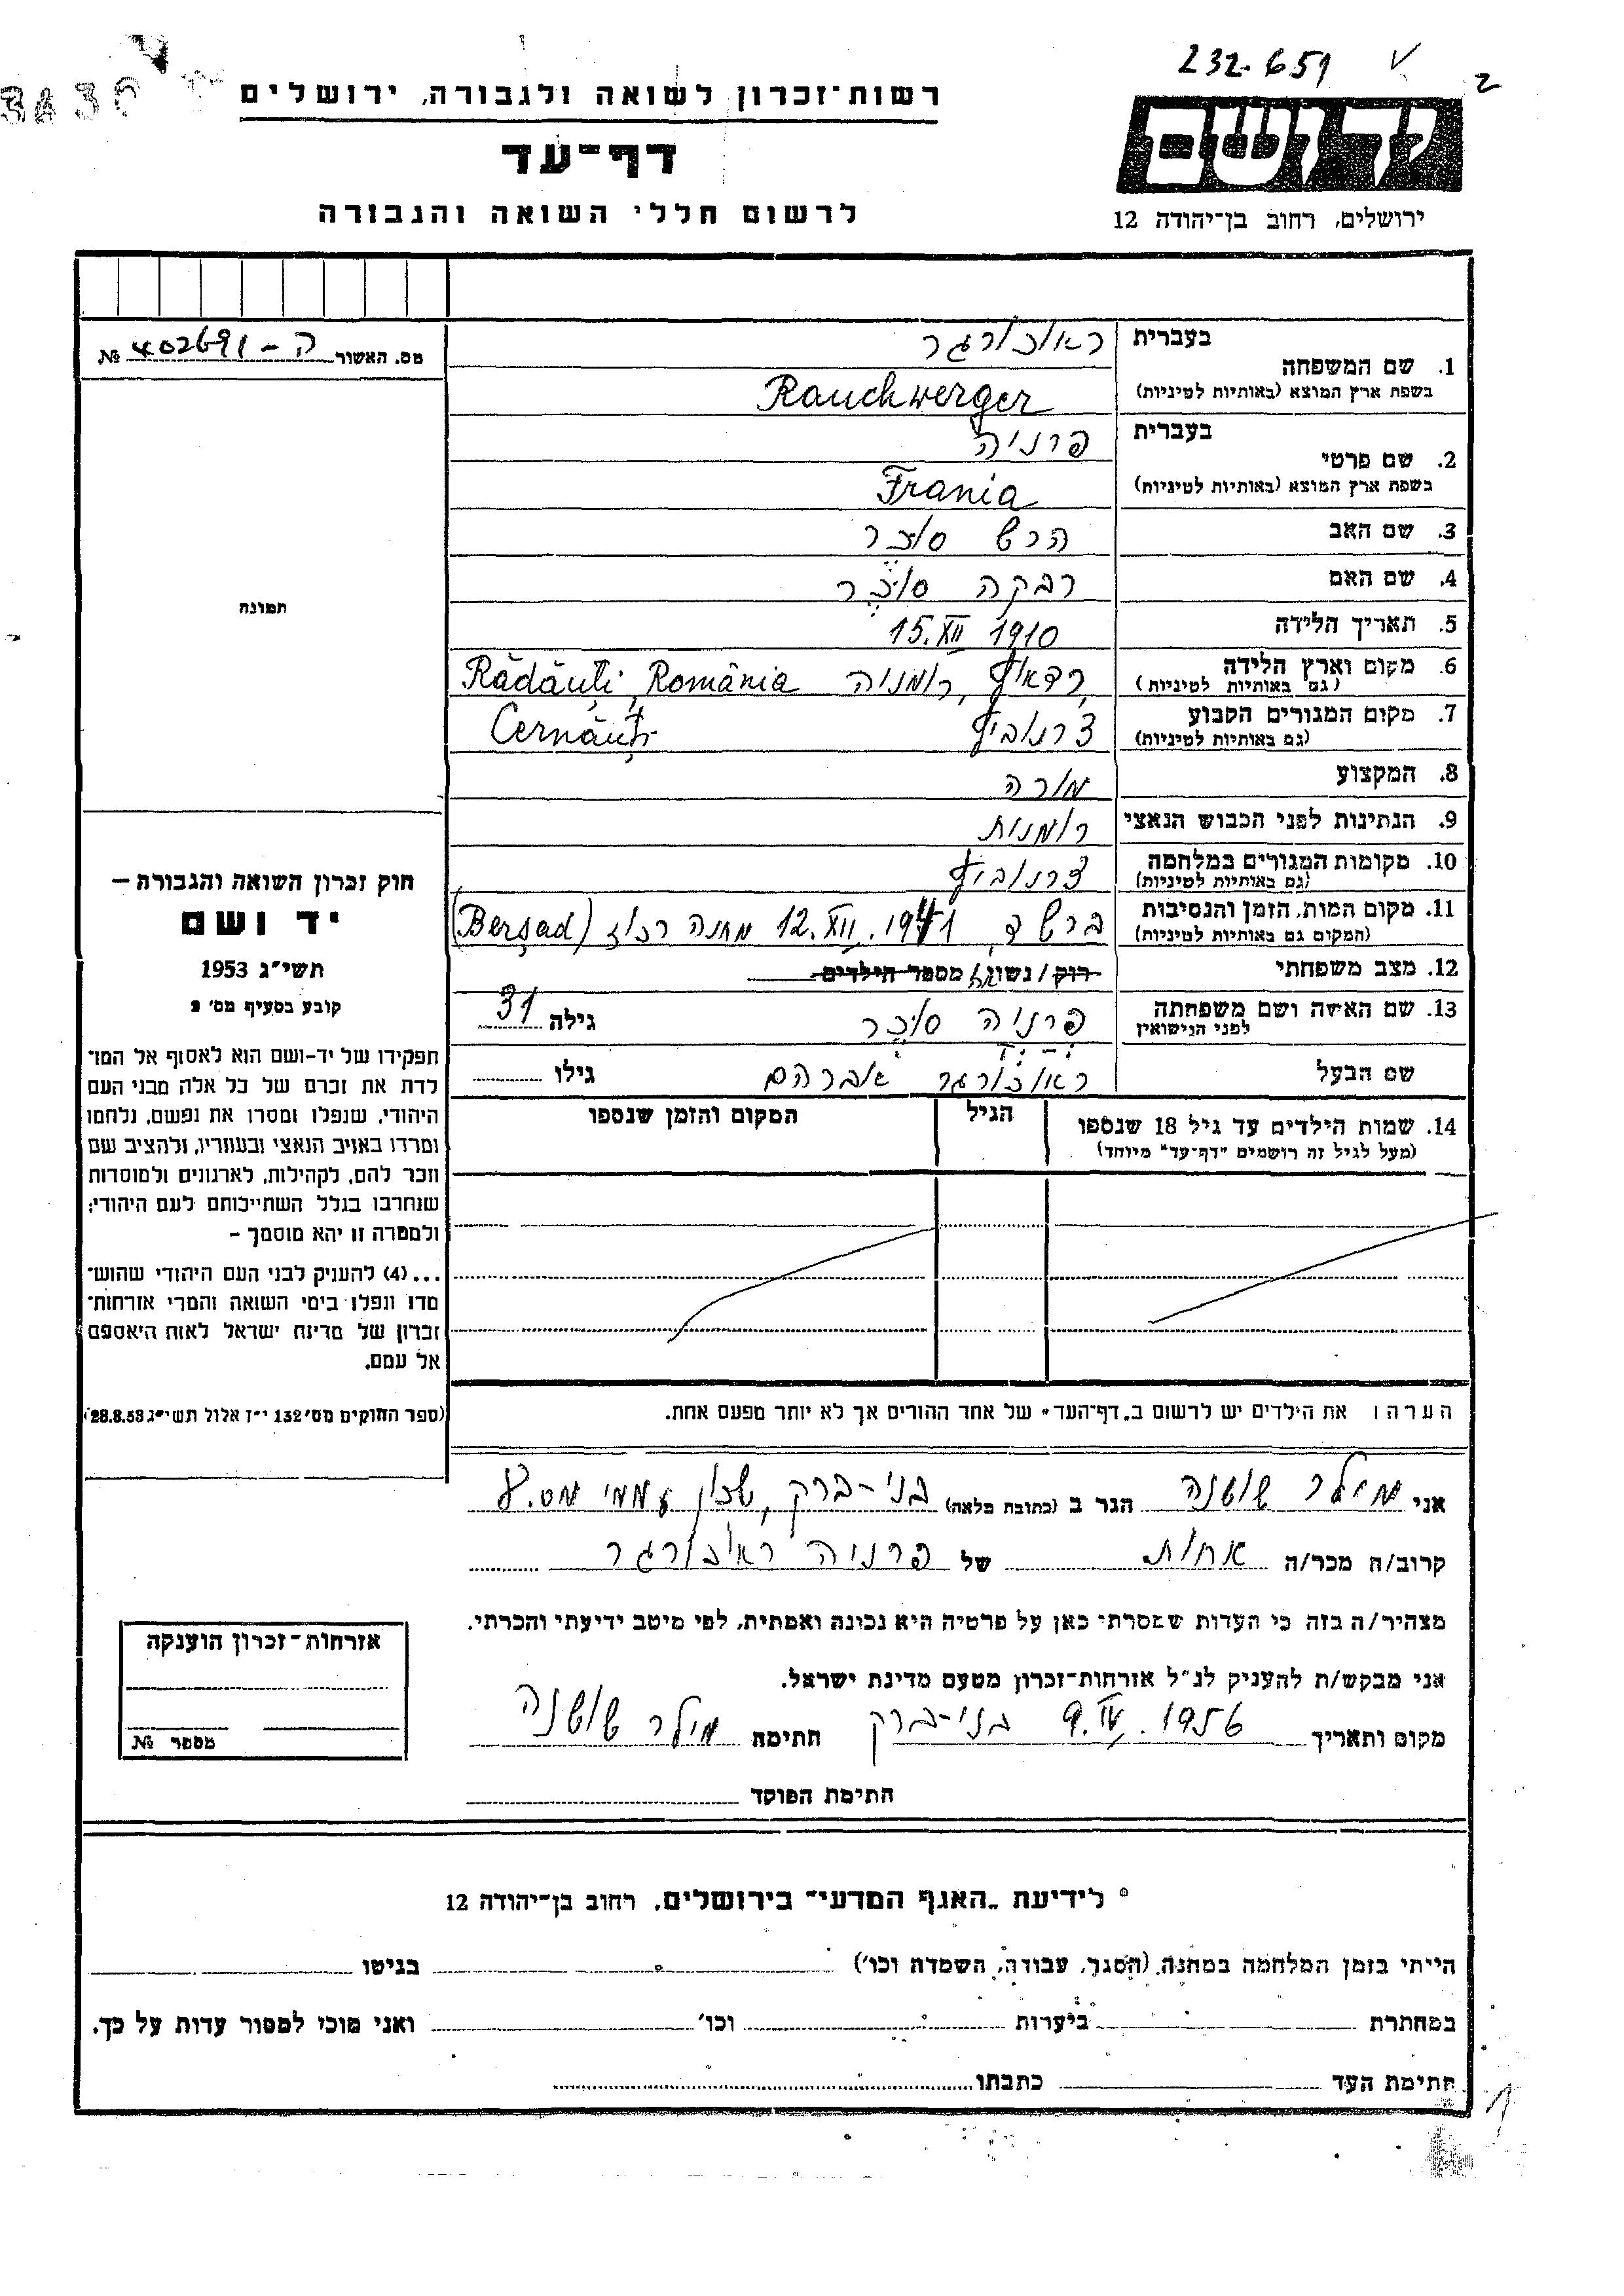 232.651
2
רשות־זכרון לשואה ולגבורה, ירושלים
דף־עד
לרשום חללי השואה והגבורה
יד ושם
ירושלים, רחוב בן־יהודה 12
מס. האשור ה-402691 №
תמונה
1. שם המשפחה
בעברית ראוכורגר
בשפת ארץ המוצא (באותיות לטיניות) Rauchwerger
2. שם פרטי
בעברית פרניה
בשפת ארץ המוצא (באותיות לטיניות) Frania
3. שם האב הרש
4. שם האם רבקה
5. תאריך הלידה 15.XII 1910
6. מקום וארץ הלידה (גם באותיות לטיניות) רדאוץ, רומניה Rădăuți, România
7. מקום המגורים הקבוע (גם באותיות לטיניות) צרנוביץ Cernăuți
8. המקצוע מורה
9. הנתינות לפני הכבוש הנאצי רומנית
10. מקומות המגורים במלחמה (גם באותיות לטיניות) צרנוביץ
11. מקום המות, הזמן והנסיבות (המקום גם באותיות לטיניות) ברשד 12.XII.1941 מחנה רכוז (Berșad)
12. מצב משפחתי רוק/נשואה/מספר הילדים
13. שם האישה ושם משפחתה לפני הנישואין פרניה גילה 31
שם הבעל ראוכורגר אברהם גילו
14. שמות הילדים עד גיל 18 שנספו
(מעל לגיל זה רושמים "דף־עד" מיוחד)
הגיל
המקום והזמן שנספו
חוק זכרון השואה והגבורה –
יד ושם
תשי"ג 1953
קובע בסעיף מס' 2
תפקידו של יד-ושם הוא לאסוף אל המו־
לדת את זכרם של כל אלה מבני העם
היהודי, שנפלו ומסרו את נפשם, נלחמו
ומרדו באויב הנאצי ובעוזריו, ולהציב שם
וזכר להם, לקהילות, לארגונים ולמוסדות
שנחרבו בגלל השתייכותם לעם היהודי;
ולמטרה זו יהא מוסמך –
...(4) להעניק לבני העם היהודי שהוש־
מדו ונפלו בימי השואה והמרי אזרחות־
זכרון של מדינת ישראל לאות היאספם
אל עמם.
(ספר החוקים מס' 132 י"ז אלול תשי"ג 28.8.53)
הערה: את הילדים יש לרשום ב"דף־העד" של אחד ההורים אך לא יותר מפעם אחת.
אני מילר שושנה הגר ב (כתובת מלאה) בני-ברק, שכון עממי מס. 8
קרוב/ה מכר/ה אחות של פרניה ראוכורגר
מצהיר/ה בזה כי העדות שמסרתי כאן על פרטיה היא נכונה ואמתית, לפי מיטב ידיעתי והכרתי.
אני מבקש/ת להעניק לנ"ל אזרחות־זכרון מטעם מדינת ישראל.
מקום ותאריך 9.IV.1956 בני-ברק חתימה מילר שושנה
חתימת הפוקד
אזרחות־זכרון הוענקה
מספר №
לידיעת "האגף המדעי" בירושלים, רחוב בן־יהודה 12
הייתי בזמן המלחמה במחנה, (הסגר, עבודה, השמדה וכו') בגיטו
במחתרת ביערות וכו' ואני מוכן למסור עדות על כך.
חתימת העד כתבתו